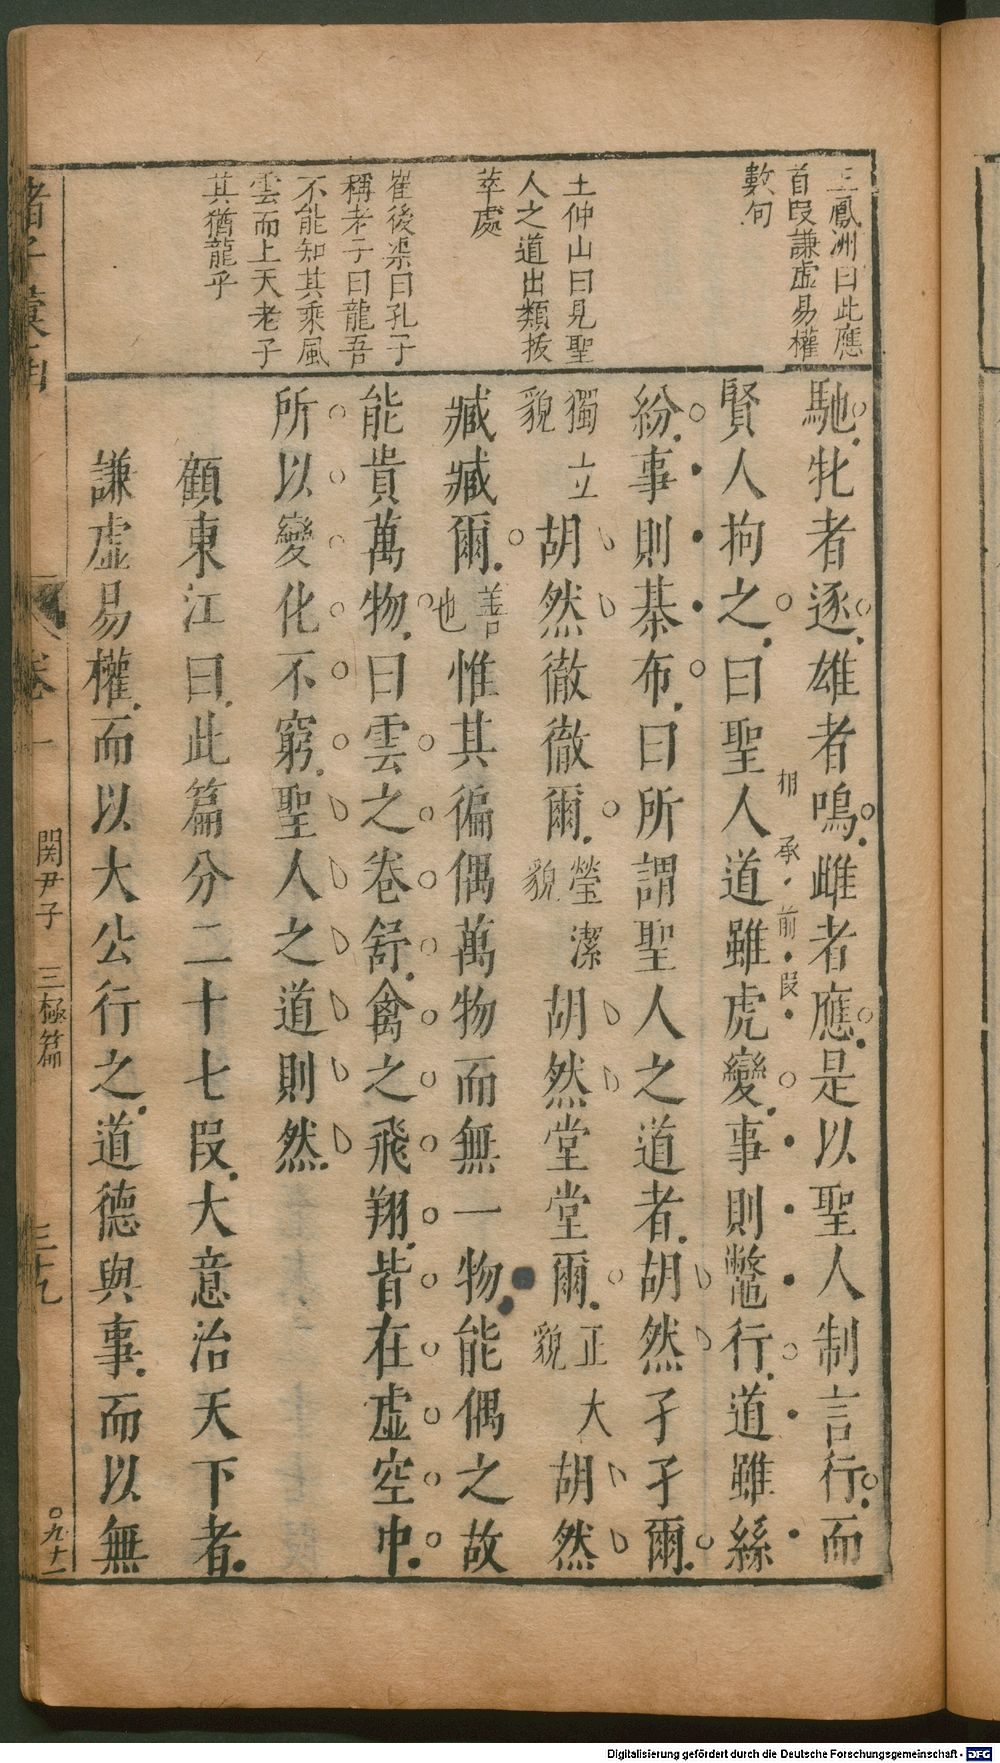 王鳳洲曰此應
首段謙虛易權
數句
王仲山曰見聖
人之道出類拔
萃處
崔後渠曰孔子
稱老子曰龍吾
不能知其乘風
雲而上天老子
其猶龍乎
馳牝者逐雄者鳴雌者應是以聖人制言行而
相承前段
賢人拘之曰聖人道雖虎變事則鼈行道雖絲
紛事則棊布曰所謂聖人之道者胡然孑孑爾
獨立貌胡然徹徹爾瑩潔貌胡然堂堂爾正大貌胡然
臧臧爾善也惟其徧偶萬物而無一物能偶之故
能貴萬物曰雲之卷舒禽之飛翔皆在虛空中
所以變化不窮聖人之道則然
顧東江曰此篇分二十七段大意治天下者
謙虛易權而以大公行之道德與事而以無
諸子彙函
卷一
関尹子 三極篇
三十九
〇九十一
Digitalisierung gefördert durch die Deutsche Forschungsgemeinschaft - DFG